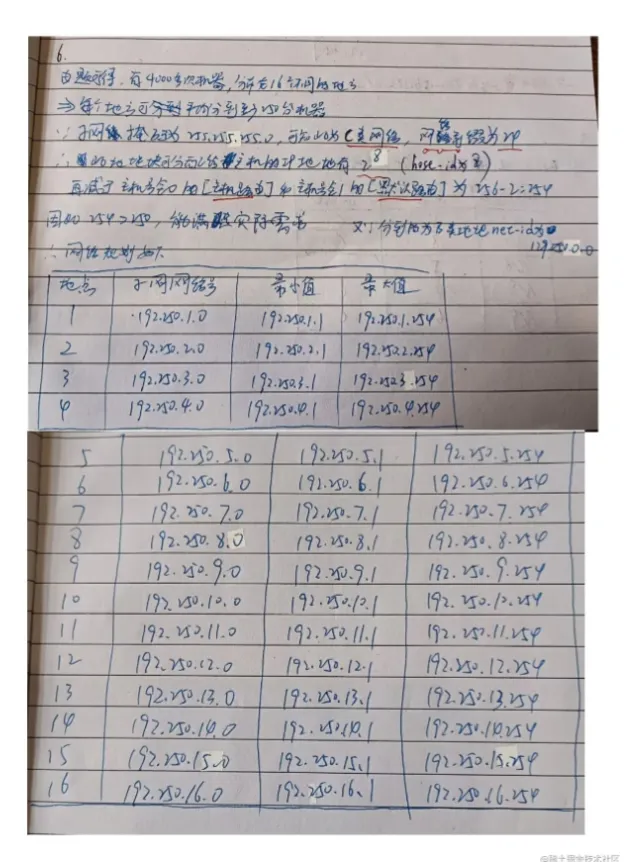 6.
由题可得，有4000多台机器，分布在16个不同的地点
⇒ 每个地点可分到平均分到250台机器
∵子网络掩码为255.255.255.0，可知此为C类网络，网络号为24
∴ 此地址块可分配给主机的IP地址有 2^8 (host-id为8)
再减了主机号全0的[主机路由]和主机号全1的[默认路由]为256-2=254
因此254>250，能满足实际需要 又∵分到的为B类地址net-id为
129.250.0.0
∴网络规划如下
地点 子网网络号 最小值 最大值
1 192.250.1.0 192.250.1.1 192.250.1.254
2 192.250.2.0 192.250.2.1 192.250.2.254
3 192.250.3.0 192.250.3.1 192.250.3.254
4 192.250.4.0 192.250.4.1 192.250.4.254
5 192.250.5.0 192.250.5.1 192.250.5.254
6 192.250.6.0 192.250.6.1 192.250.6.254
7 192.250.7.0 192.250.7.1 192.250.7.254
8 192.250.8.0 192.250.8.1 192.250.8.254
9 192.250.9.0 192.250.9.1 192.250.9.254
10 192.250.10.0 192.250.10.1 192.250.10.254
11 192.250.11.0 192.250.11.1 192.250.11.254
12 192.250.12.0 192.250.12.1 192.250.12.254
13 192.250.13.0 192.250.13.1 192.250.13.254
14 192.250.14.0 192.250.14.1 192.250.14.254
15 192.250.15.0 192.250.15.1 192.250.15.254
16 192.250.16.0 192.250.16.1 192.250.16.254
@稀土掘金技术社区